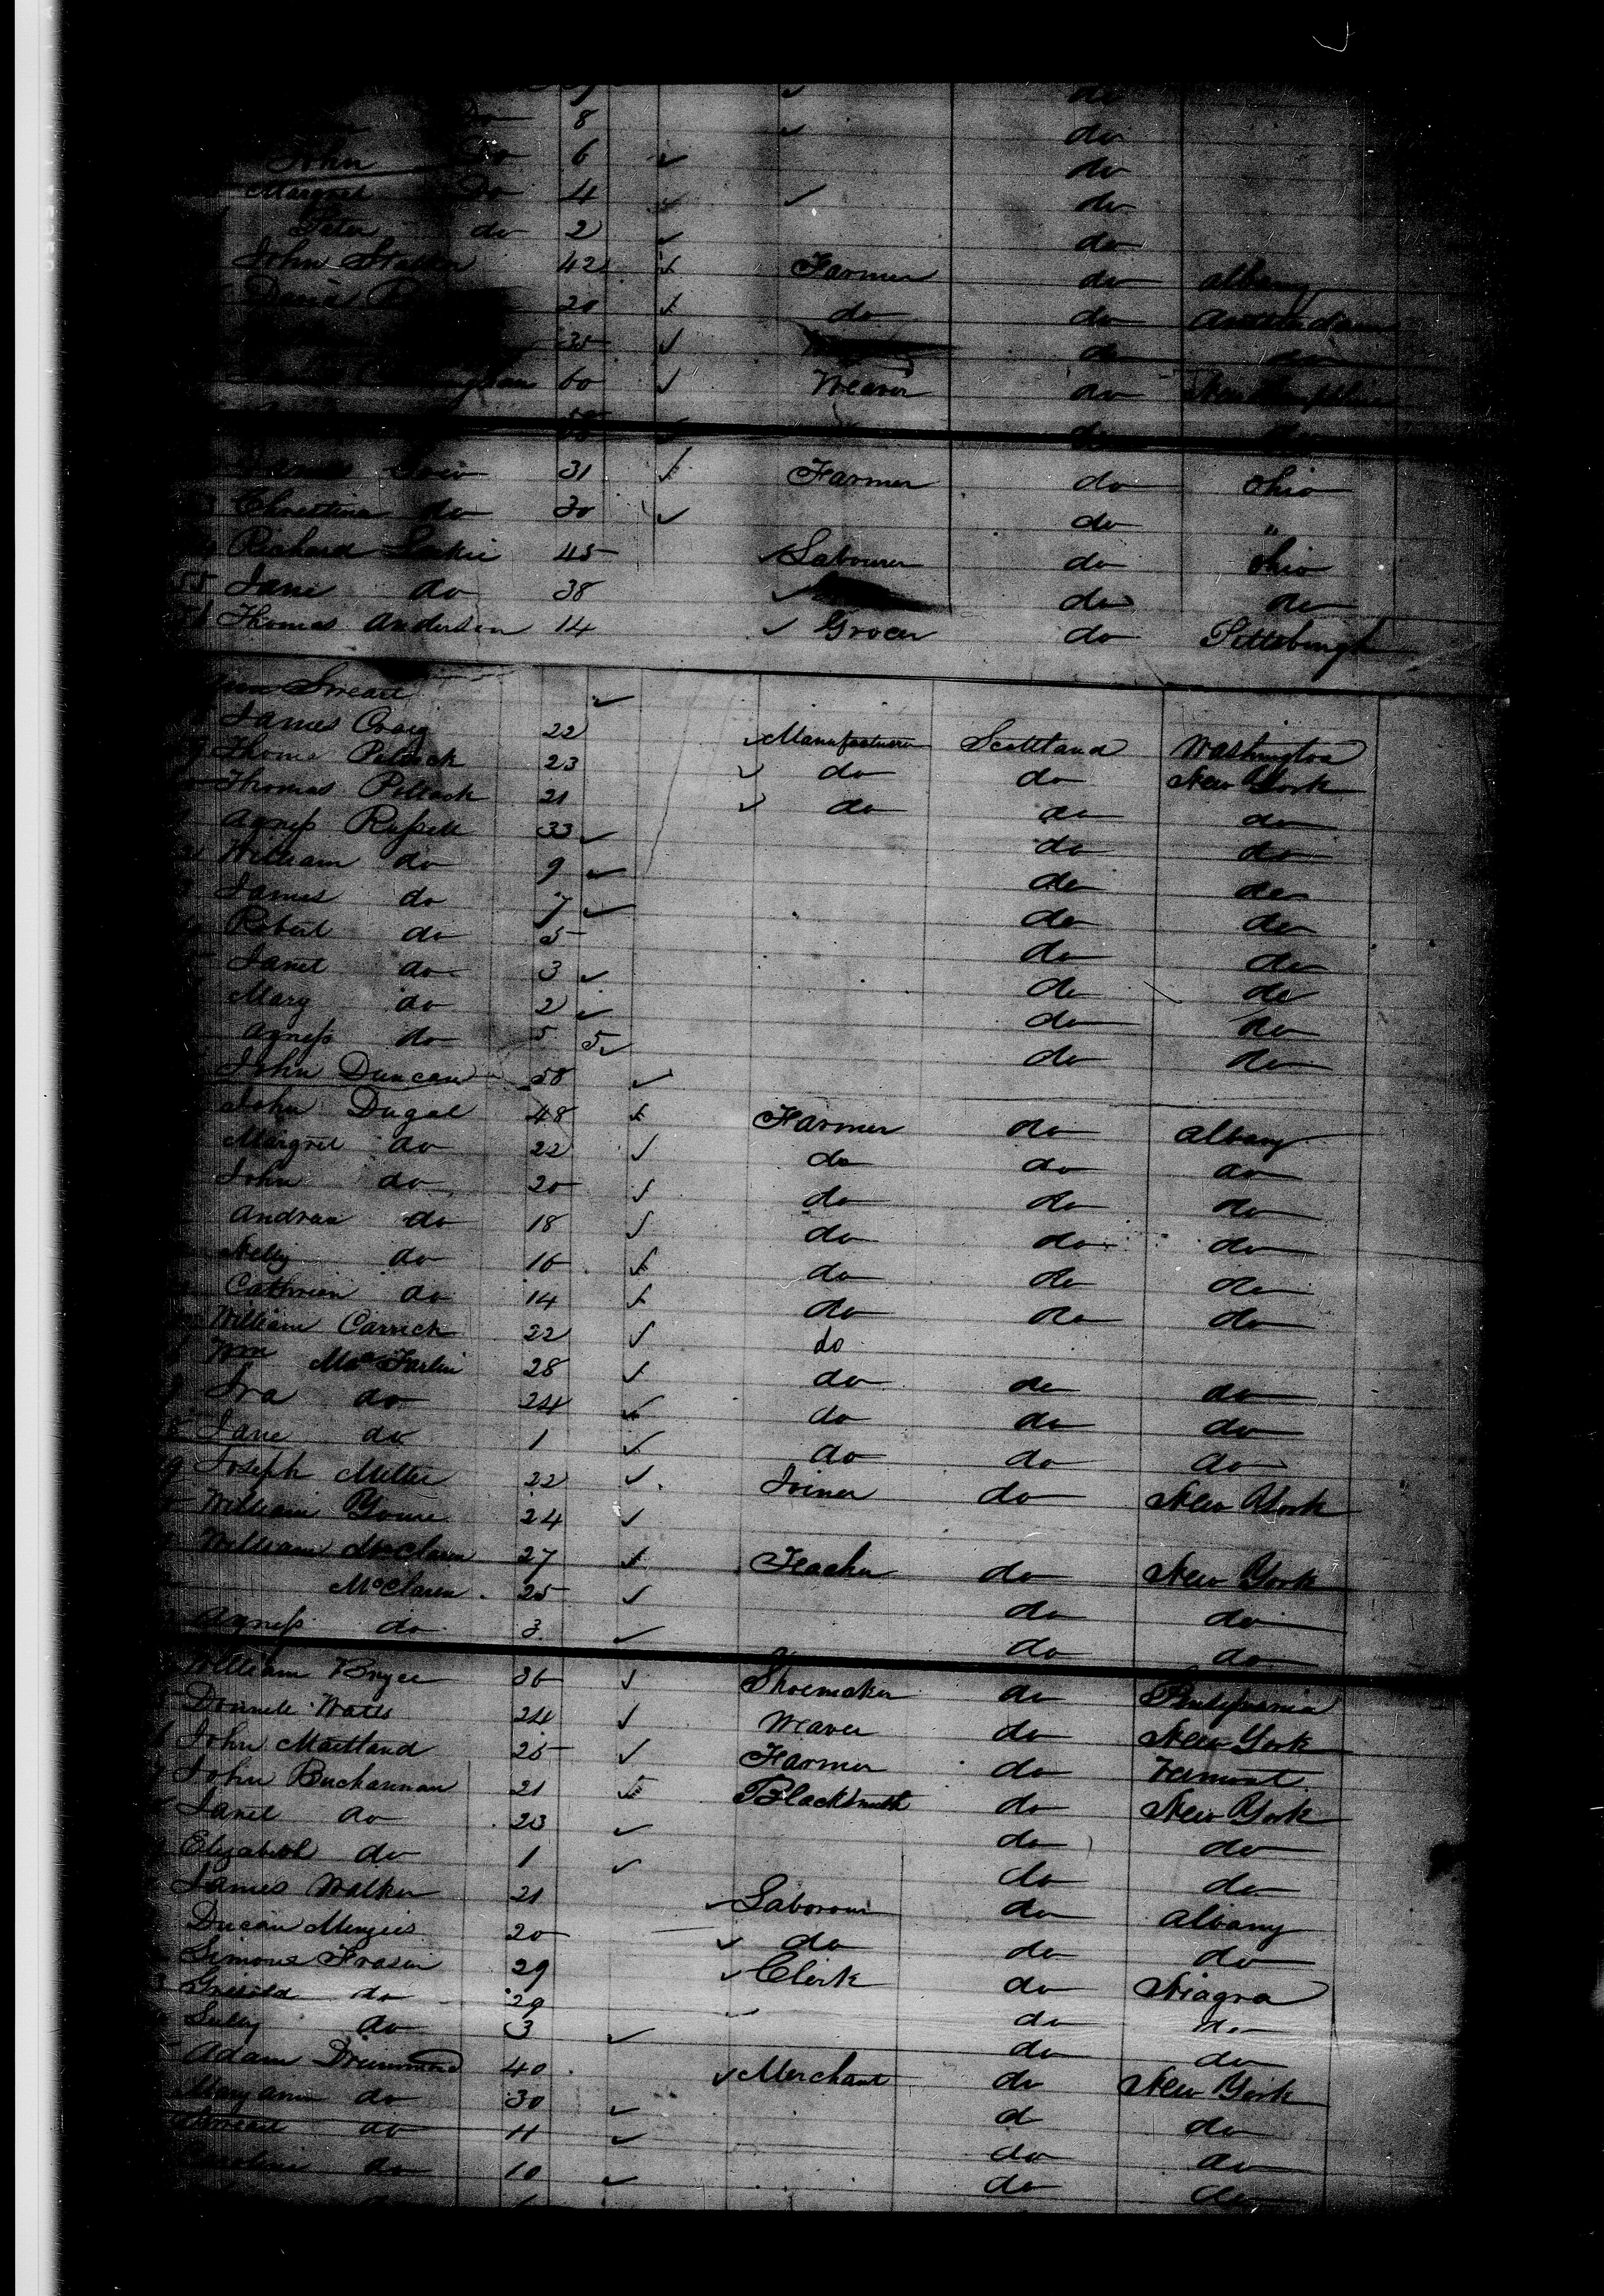 do
Do 8 do
John Do 6 do
Margret Do 4 do
Peter do 2 do
John 42 Farmer do Albany
20 do do Amsterdam
35 do do
60 Weaver do New
do
James 31 Farmer do Ohio
Christina do 30 do "
Richard Leckie 45 Labourer do Ohio
55 Jane do 38 do do
Thomas Anderson 14 Grocer do Pittsburgh
Smeall
James Craig 22 Manufacturer Scottland Washington
Thoms Pollock 23 do do New York
Thomas Pollock 21 do do do
Agness Russell 33 do do
William do 9 do do
James do 7 do do
Robert do 5 do do
Janet do 3 do do
Mary do 2 do do
Agness do 5 5 do do
John Duncan 58
John Dugal 48 Farmer do Albany
Margret do 22 do do do
John do 20 do do do
Andrew do 18 do do do
Nelly do 16 do do do
Cathrien do 14 do do do
William Carrick 22 do
Wm Mac Farlin 28 do do do
Ira do 24 do do do
Jane do 1 do do do
Joseph Miller 22 Joiner do New York
William 24
William McClaren 27 Teacher do New York
McClaren 25 do do
Agness do 3 do do
William Bryce 36 Shoemaker do Penlsylvania
Watts 24 Weaver do New York
John Maitland 25 Farmer do Vermont
John Buchannan 21 Blacksmith do New York
Janet do 23 do do
Elizabeth do 1 do do
James Walker 21 Laborour do Albany
Ducan Menzies 20 do do do
Simone Fraser 29 Clerk do Niagra
do 29 do do
do 3 do do
Adam Drummond 40 Merchant do New York
Mary ann do 30 d do
do 11 do do
Caroline do 10 do do